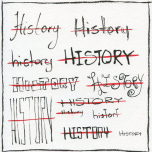 History History
history HISTORY
HISTORY History
HISTORY HISTORY
history history
HISTORY History